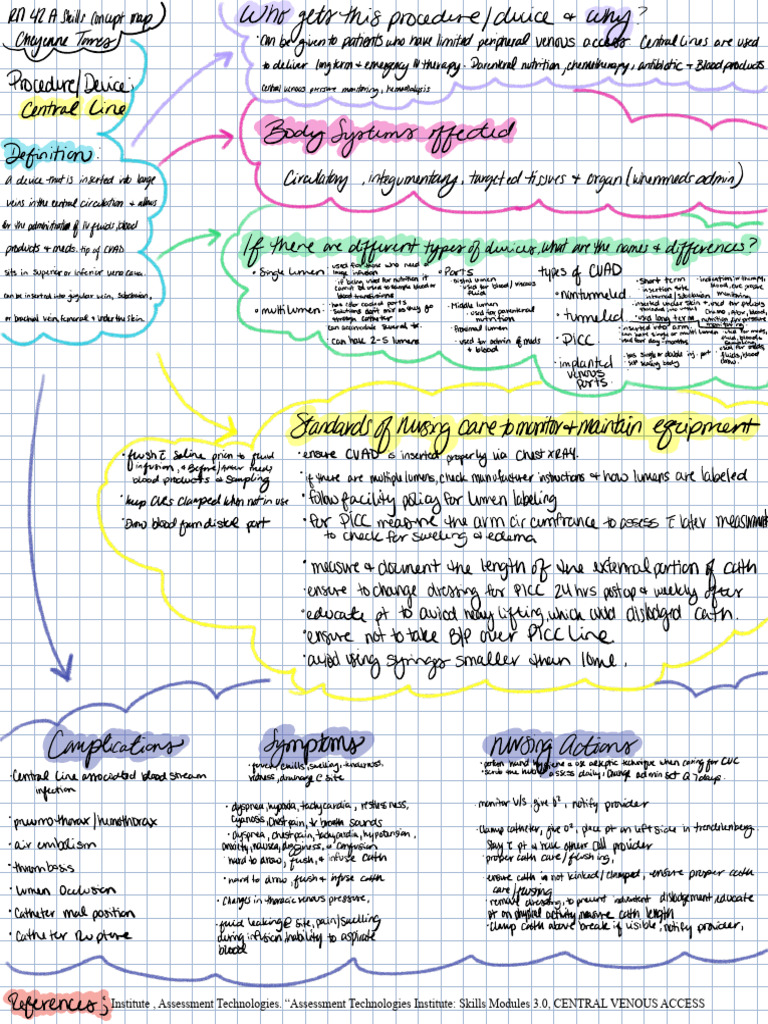 RN 42 A Skills concept map
Cheyenne Torres
Procedure/Device:
Central Line
Definition:
A device that is inserted into large
veins in the central circulation & allows
for the administration of IV fluids, blood
products & meds. tip of CVAD
sits in superior or inferior vena cava.
can be inserted into jugular vein, subclavian,
or brachial vein, femoral & under the skin.
Who gets this procedure/device & why?
• Can be given to patients who have limited peripheral venous access. Central Lines are used
to deliver long term & emergency IV therapy. Parenteral nutrition, chemotherapy, antibiotic & Blood products
central venous pressure monitoring, hemodialysis
Body Systems affected
Circulatory, integumentary, targeted tissues & organ (when meds admin)
If there are different types of devices, what are the names & differences?
• Single lumen
used for those who need
large infusion
if being used for nutrition it
cannot be used to sample blood or
blood transfusions
• multi lumen
• has color coded ports
• Solutions don't mix as they go
through catheter
can accomodate several tx
Can have 2-5 lumens
• Ports
• distal lumen
used for blood / viscous
fluid
Middle lumen
• used for parenteral
nutrition
Proximal lumen
• used for admin of meds
& blood
types of CVAD
• nontunneled
• short term
insertion site
internal / subclavian
• tunneled
• inserted under skin
• used long term
• PICC
• inserted into arm
• implanted
venous
ports
• has single or double inj. port
Standards of Nursing care to monitor & maintain equipment
• flush c̄ saline prior to fluid
infusion, & before/after meds,
blood products & sampling
• keep CVCs clamped when not in use
• Draw blood from distal port
• ensure CVAD is inserted properly via Chest XRAY.
• if there are multiple lumens, check manufacturer instructions & how lumens are labeled
• follow facility policy for lumen labeling
• for PICC measure the arm circumfrance to assess c̄ later measurements
to check for swelling & edema
• measure & document the length of the external portion of cath
• ensure to change dressing for PICC 24 hrs postop & weekly after
• educate pt to aviod heavy lifting, which could dislodged cath.
• ensure not to take B/P over PICC Line.
• avoid using syrings smaller than 10mL.
Complications
• Central Line associated blood stream
infection
• pneumothorax/hemothorax
• air embolism
• thrombosis
• Lumen Occlusion
• Catheter malposition
• Catheter Rupture
Symptoms
• fever, chills, swelling, tenderness,
redness, drainage @ site
• dyspnea, hypoxia, tachycardia, restlessness,
cyanosis, chest pain, ↓ breath sounds
• dyspnea, chest pain, tachycardia, hypotension,
anxiety, nausea, dizziness, & confusion
• hard to draw, flush, & infuse cath
• hard to draw, flush & infuse cath
• Changes in thoracic venous pressure,
• fluid leaking @ site, pain/swelling
during infusion, inability to aspirate
blood
Nursing Actions
• perform hand hygiene & use aseptic technique when caring for CVC
• scrub the hub, assess daily, change admin set Q 7 days.
monitor V/S, give O², notify provider
• Clamp catheter, give O², place pt on left side in trendelenberg.
Stay c̄ pt & have other call provider
• proper cath care / flushing,
ensure cath is not kinked / clamped, ensure proper cath
care/flushing
• remove dressing, to prevent dislodgement, educate
pt on physical activity, measure cath length
• Clamp cath above break if visible, notify provider,
References; Institute , Assessment Technologies. “Assessment Technologies Institute: Skills Modules 3.0, CENTRAL VENOUS ACCESS